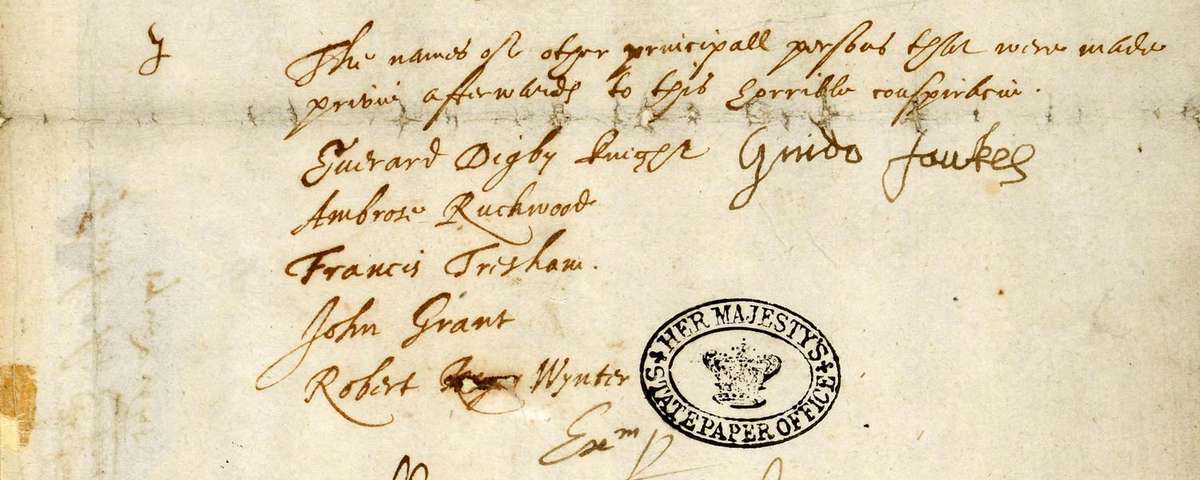 The names of other principall persons that were made
privie afterwards to this horrible conspiracie.
Everard Digby knight Guido fawkes
Ambrose Ruckwood
Francis Tresham.
John Grant
Robert Wynter
HER MAJESTY'S
STATE PAPER OFFICE
Exm p